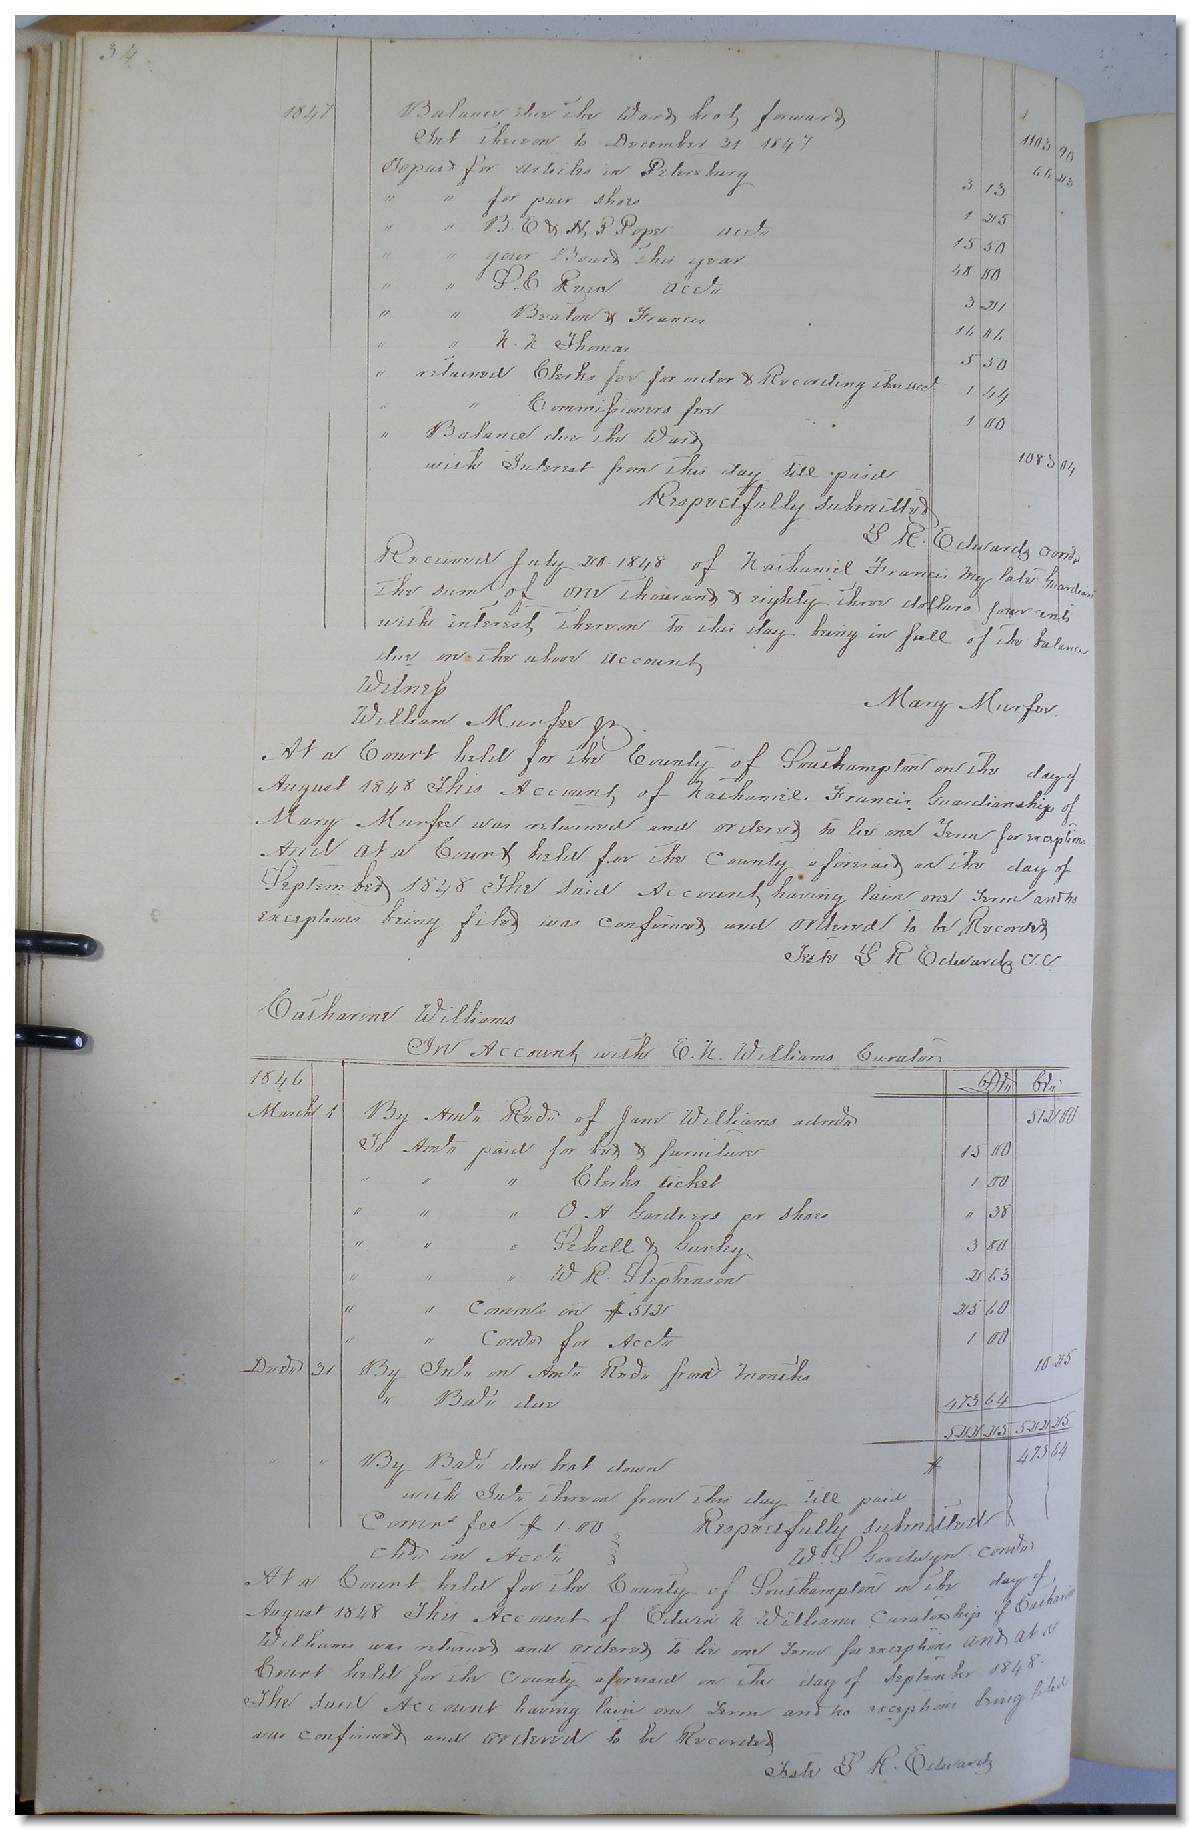 34
1847 Balance due the Ward brot forward 1103 90
Int thereon to December 31 1847 66 23
To paid for articles in Petersburg 3 13
" " for pair shoes 1 25
" " B. E & N. P Pope acct 15 50
" " your Board this year 48 00
" " acct 3 21
" " Beaton & Francis 16 06
" " Thomas 5 50
" retained Clerks fee for order & Recording this acct 1 44
" " Commissioners fee 1 00
" Balance due the Ward 1083 04
with Interest from this day till paid
Respectfully submitted
L R. Edwards comr
Received July 20 1848 of Nathaniel Francis my late Guardian
the sum of one thousand & eighty three dollars four cents
with interest thereon to this day being in full of the balance
due on the above account
Witness Mary Murfee
William Murfee jr
At a Court held for the County of Southampton on the day of
August 1848 This Account of Nathaniel Francis Guardianship of
Mary Murfee was returned and ordered to lie one Term for exceptions
And at a Court held for the County aforesaid on the day of
September 1848 The said Account having lain one Term and no
exceptions being filed was confirmed and ordered to be Recorded
Teste L R Edwards C.C.
Catharine Williams
In Account with E. N. Williams Curator
1846 Dr Cr
March 1 By Amt Recd of Jane Williams admrx 512 00
To Amt paid for bed & furniture 15 00
" " " Clerks ticket 1 00
" " " O A Gardners pr shoes " 38
" " " Sebell & Gurley 3 00
" " " W R. Stephenson 2 63
" " Comms on $512 25 60
" " Comr for Acct 1 00
Decr 31 By Int on Amt Recd from months 10 25
" Bal due 473 64
522 25 522 25
" " By Bal due brot down $ 473 64
with Int thereon from this day till paid
Comrs fee $1.00 Respectfully submitted
chd in Acct W. S Goodwyn comr
At a Court held for the County of Southampton on the day of
August 1848 This Account of Edwin N Williams Curatorship of Catharine
Williams was returned and ordered to lie one Term for exceptions and at a
Court held for the County aforesaid on the day of September 1848.
The said Account having lain one Term and no exceptions being filed
was confirmed and ordered to be Recorded
Teste L R. Edwards